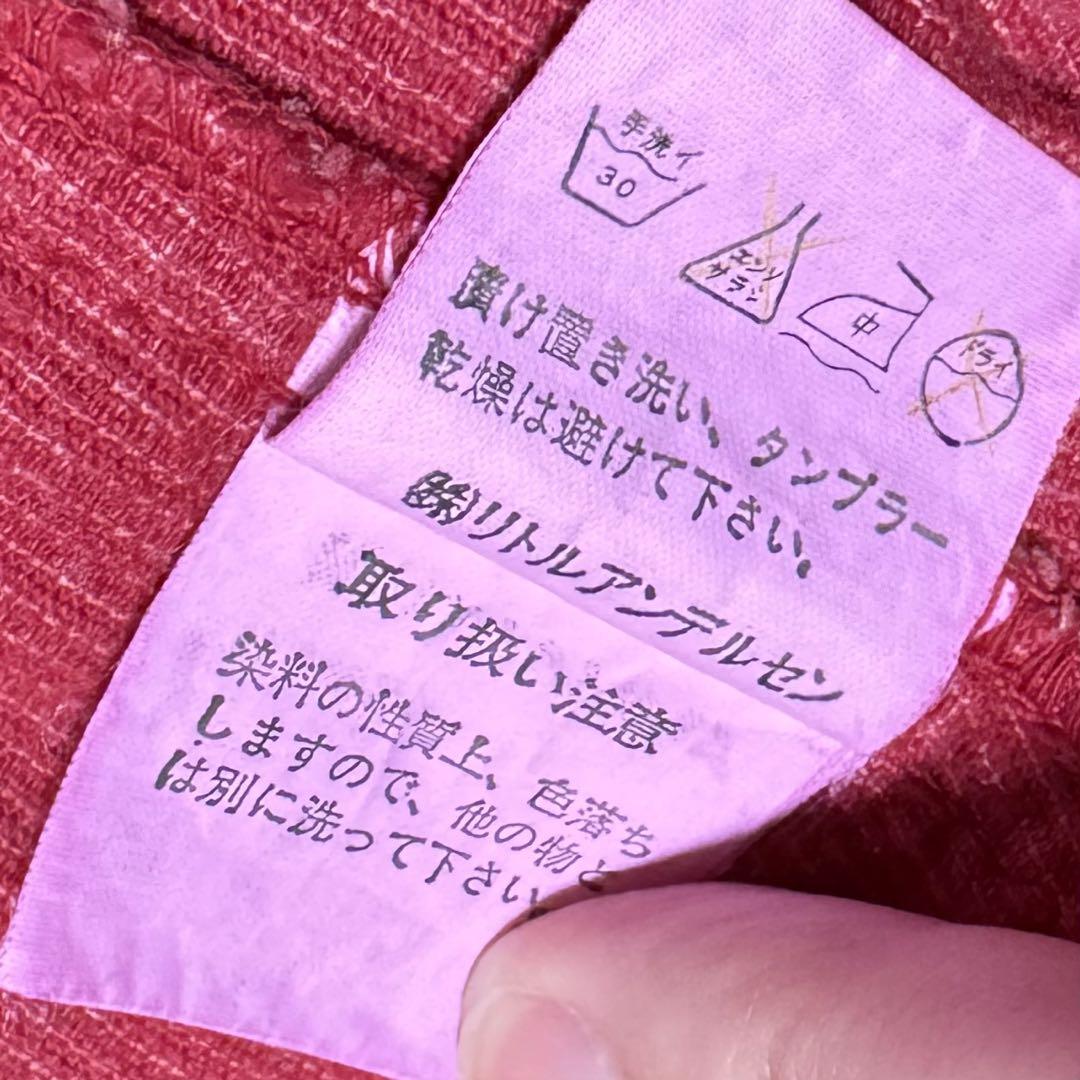 手洗イ
30
エンソ
サラシ
中
ドライ
漬け置き洗い、タンブラー
乾燥は避けて下さい。
㈱リトルアンデルセン
取り扱い注意
染料の性質上、色落ち
しますので、他の物と
は別に洗って下さい